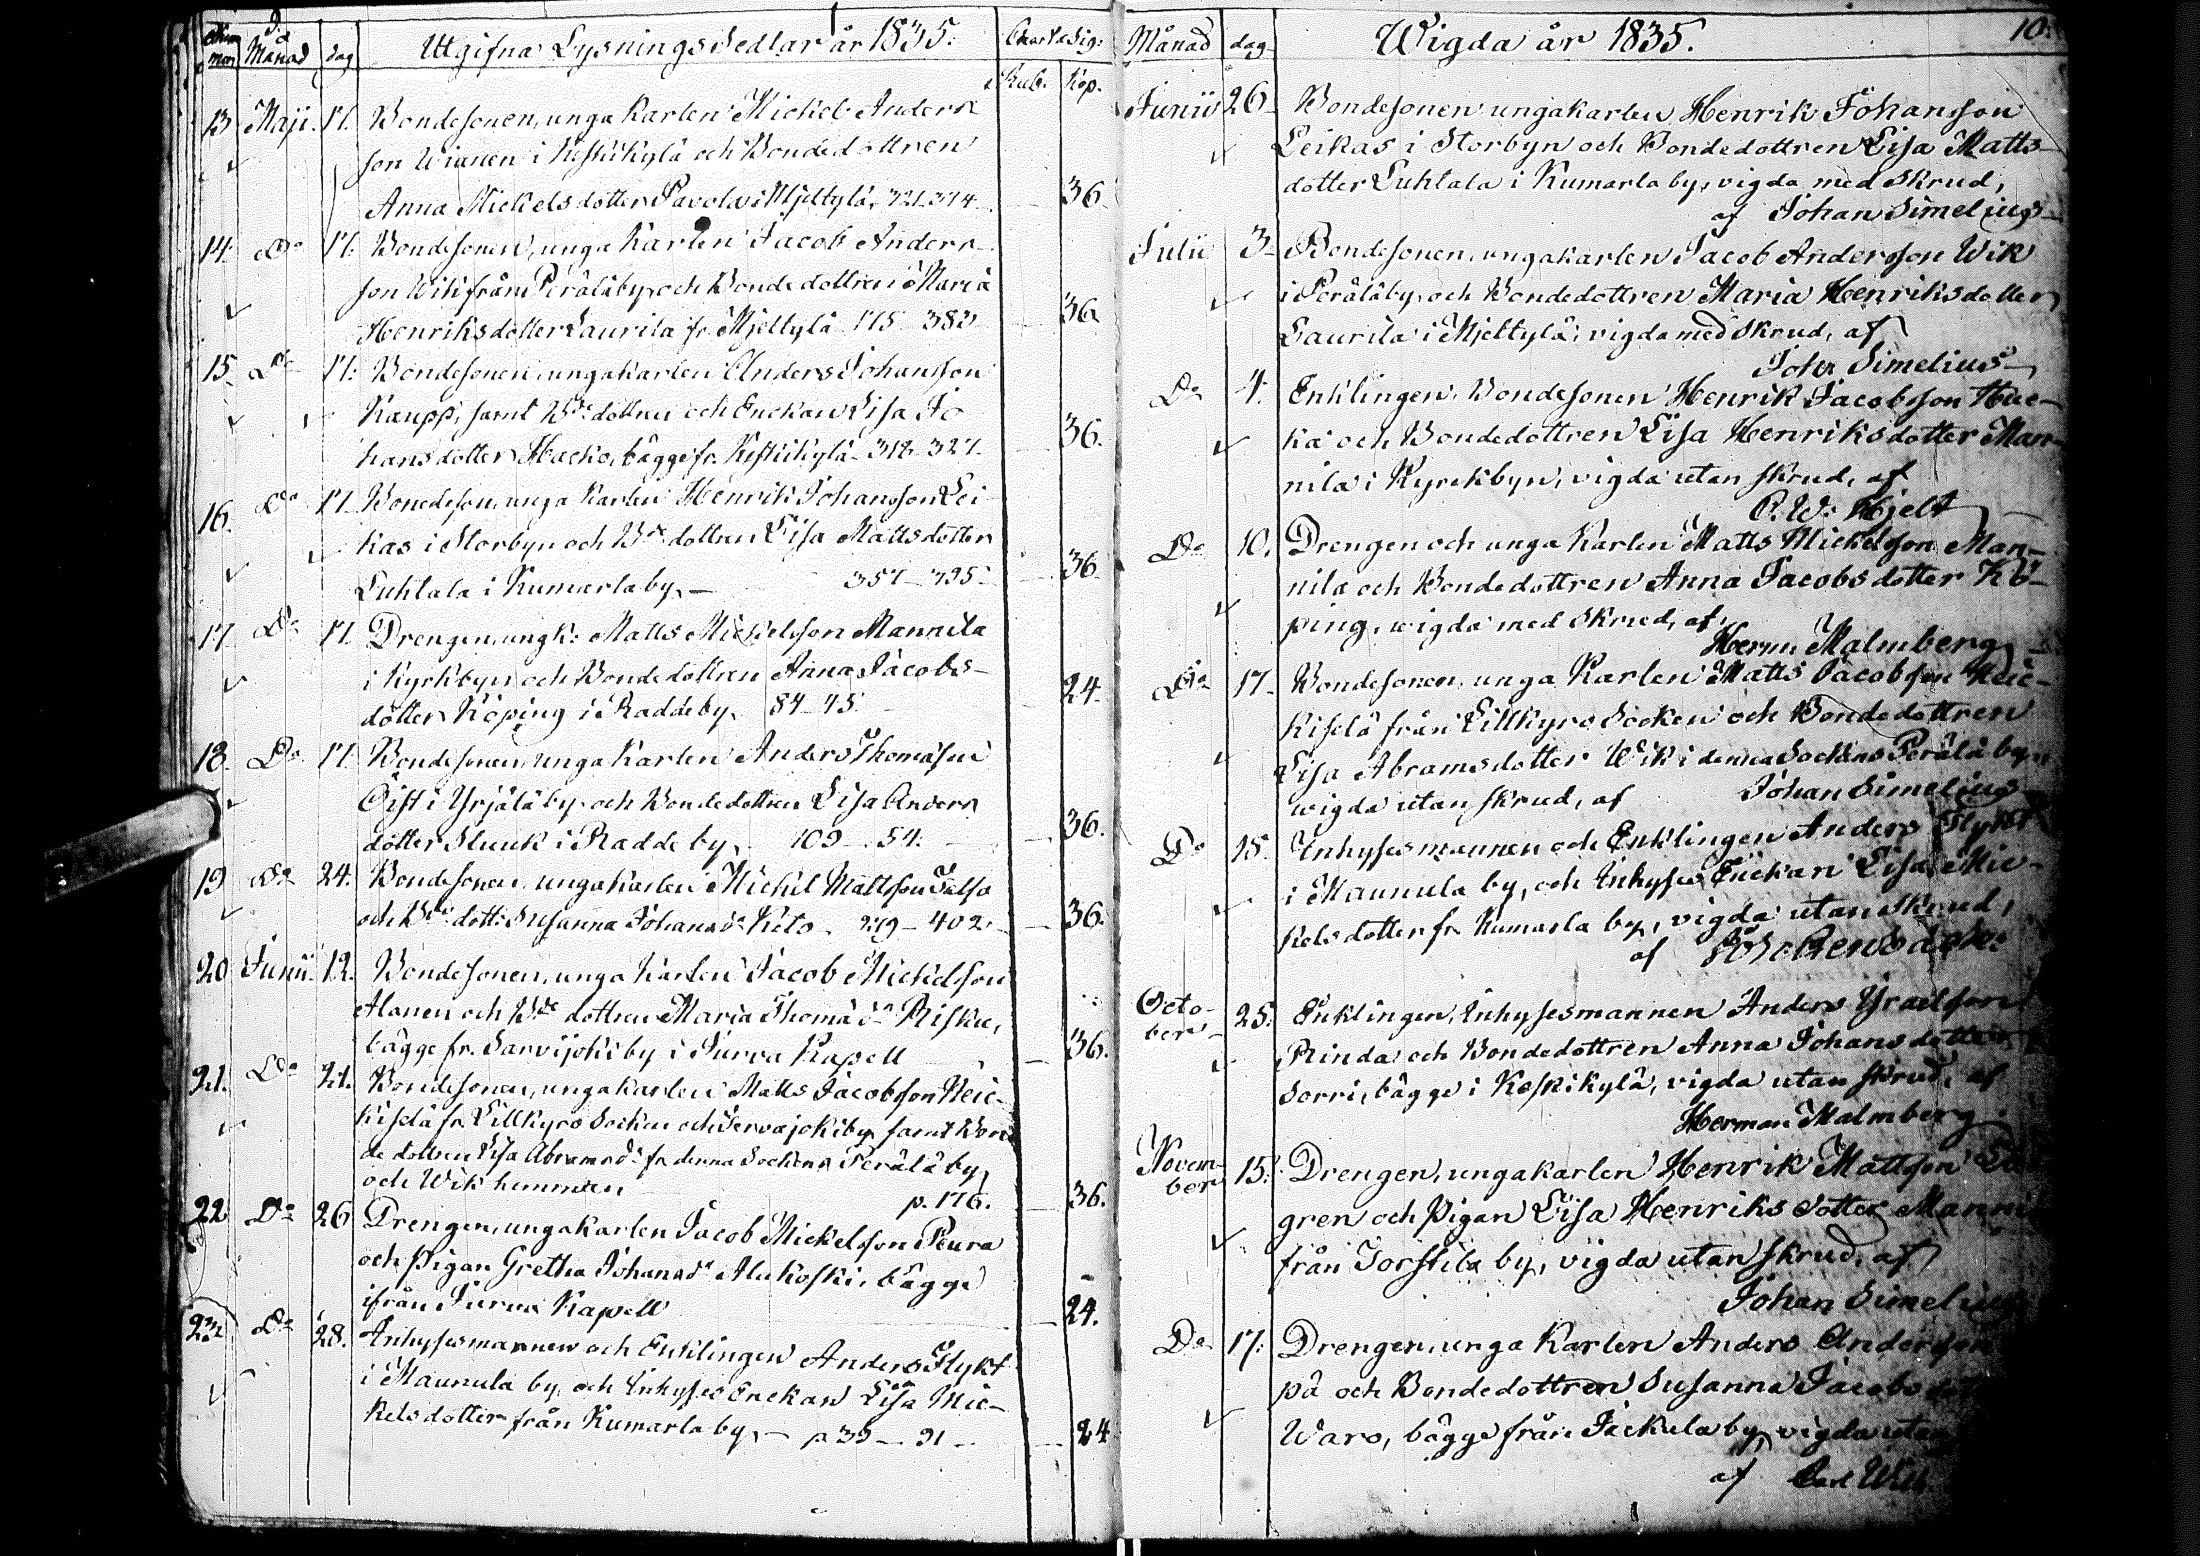 9.
Månad dag Utgifna Lysnings Sedlar år 1835. Charta Sig:
Rub. Kop.
13 Maji. 17. Bondesonen, unga Karlen Mickel Anders
son i och Bondedottren
Anna Mickelsdotter Pavola i Mjeltylä, 321. 374. 36.
14. Do 17. Bondesonen, unga Karlen Jacob Anders
son Wik från Peräläby och Bondedottren Maria
Henriksdotter Laurila fr. Mjeltylä 175 382 36
15. Do 17. Bondesonen, ungakarlen Anders Johansson
Kauppi, samt Bde dottren och Enckan Lisa Jo
hansdotter Hacko, bägge fr. 318 327. 36.
16. Do 17. Bondeson, unga Karlen Henrik Johansson Lei
kas i Storbyn och Bde dottren Lisa Mattsdotter
Luhtala i Kumarla by. — 357 — 395. 36
17 Do 17. Drengen, ungk: Matts Mickelsson Mannila
i Kyrkbyn och Bondedottren Anna Jacobs-
dotter Köping i Radde by. 84 45. 24
18. Do 17. Bondesonen, unga Karlen Anders Thomasson
Öist i Yrjälä by och Bondedottren Lisa Anders
dotter Sluuk i Radde by, 109 — 54. 36.
19 Do 24. Bondesonen, ungakarlen Michel Mattsson
och Bde dott: Susanna Johansdr Keto 279 — 402 36.
20 Junii. 12. Bondesonen, unga Karlen Jacob Mickelsson
Alanen och Bde dottren Maria Thomädr Risku,
bägge fr. Sarvijoki by i Jurva Kapell 36.
21. Do 21. Bondesonen, ungakarlen Matts Jacobsson Neic-
kiselä fr. Lillkyro Socken och Tervajoki by samt Bon
de dottren Lisa Abramsdr fr denna Sockens Perälä by
och Wik hemman p. 176. 36.
22 Do 26 Drengen, ungakarlen Jacob Mickelsson Peura
och Pigan Gretha Johansdr Alukoski, bägge
ifrån Jurva Kapell 24.
23 Do 28. Inhysesmannen och Enklingen Anders Flykt
i Maunula by, och Inhyses Enckan Lisa Mic-
kelsdotter från Kumarla by, — p 39 — 91 — 24
Månad dag Wigda år 1835. 10.
Junii 26 Bondesonen, ungakarlen Henrik Johansson
Leikas i Storbyn och Bondedottren Lisa Matts-
dotter Luhtala i Kumarla by, vigda med skrud,
af Johan Simelius
Julii 3 Bondesonen, ungakarlen Jacob Andersson Wik
i Perälä by, och Bondedottren Maria Henriksdotter
Laurila i Mjeltylä, vigda med skrud, af
Joh: Simelius
Do 4. Enklingen, Bondesonen Henrik Jacobsson
ka och Bondedottren Lisa Henriksdotter Man-
nila i Kyrckbyn, vigda utan skrud, af
C. W. Hjelt
Do 10. Drengen och unga Karlen Matts Mickelsson Man-
nila och Bondedottren Anna Jacobsdotter Kö-
ping, wigda med skrud, af
Herm Malmberg
Do 17. Bondesonen, unga Karlen Matts Jacobsson Neic-
kiselä från Lillkyro Socken och Bondedottren
Lisa Abramsdotter Wik i denna Sockens Perälä by,
wigda utan skrud, af Johan Simelius
Do 25. Inhysesmannen och Enklingen Anders Flykt
i Maunula by, och Inhyses Enckan Lisa Mic-
kelsdotter fr Kumarla by, vigda utan skrud,
af
Octo-
ber 25. Enklingen, Inhysesmannen Anders Ysraelsson
Rinda och Bondedottren Anna Johansdotter
Sorri, bägge i Koskikylä, vigda utan skrud, af
Herman Malmberg
Novem-
ber 15. Drengen, ungakarlen Henrik Mattsson
gren och Pigan Lisa Henriksdotter
från Torstila by, vigda utan skrud, af
Johan Simelius
Do 17. Drengen, unga Karlen Anders Andersson
på och Bondedottren Susanna Jacobsdotter
Waro, bägge från Jäckula by, vigda utan
af Carl